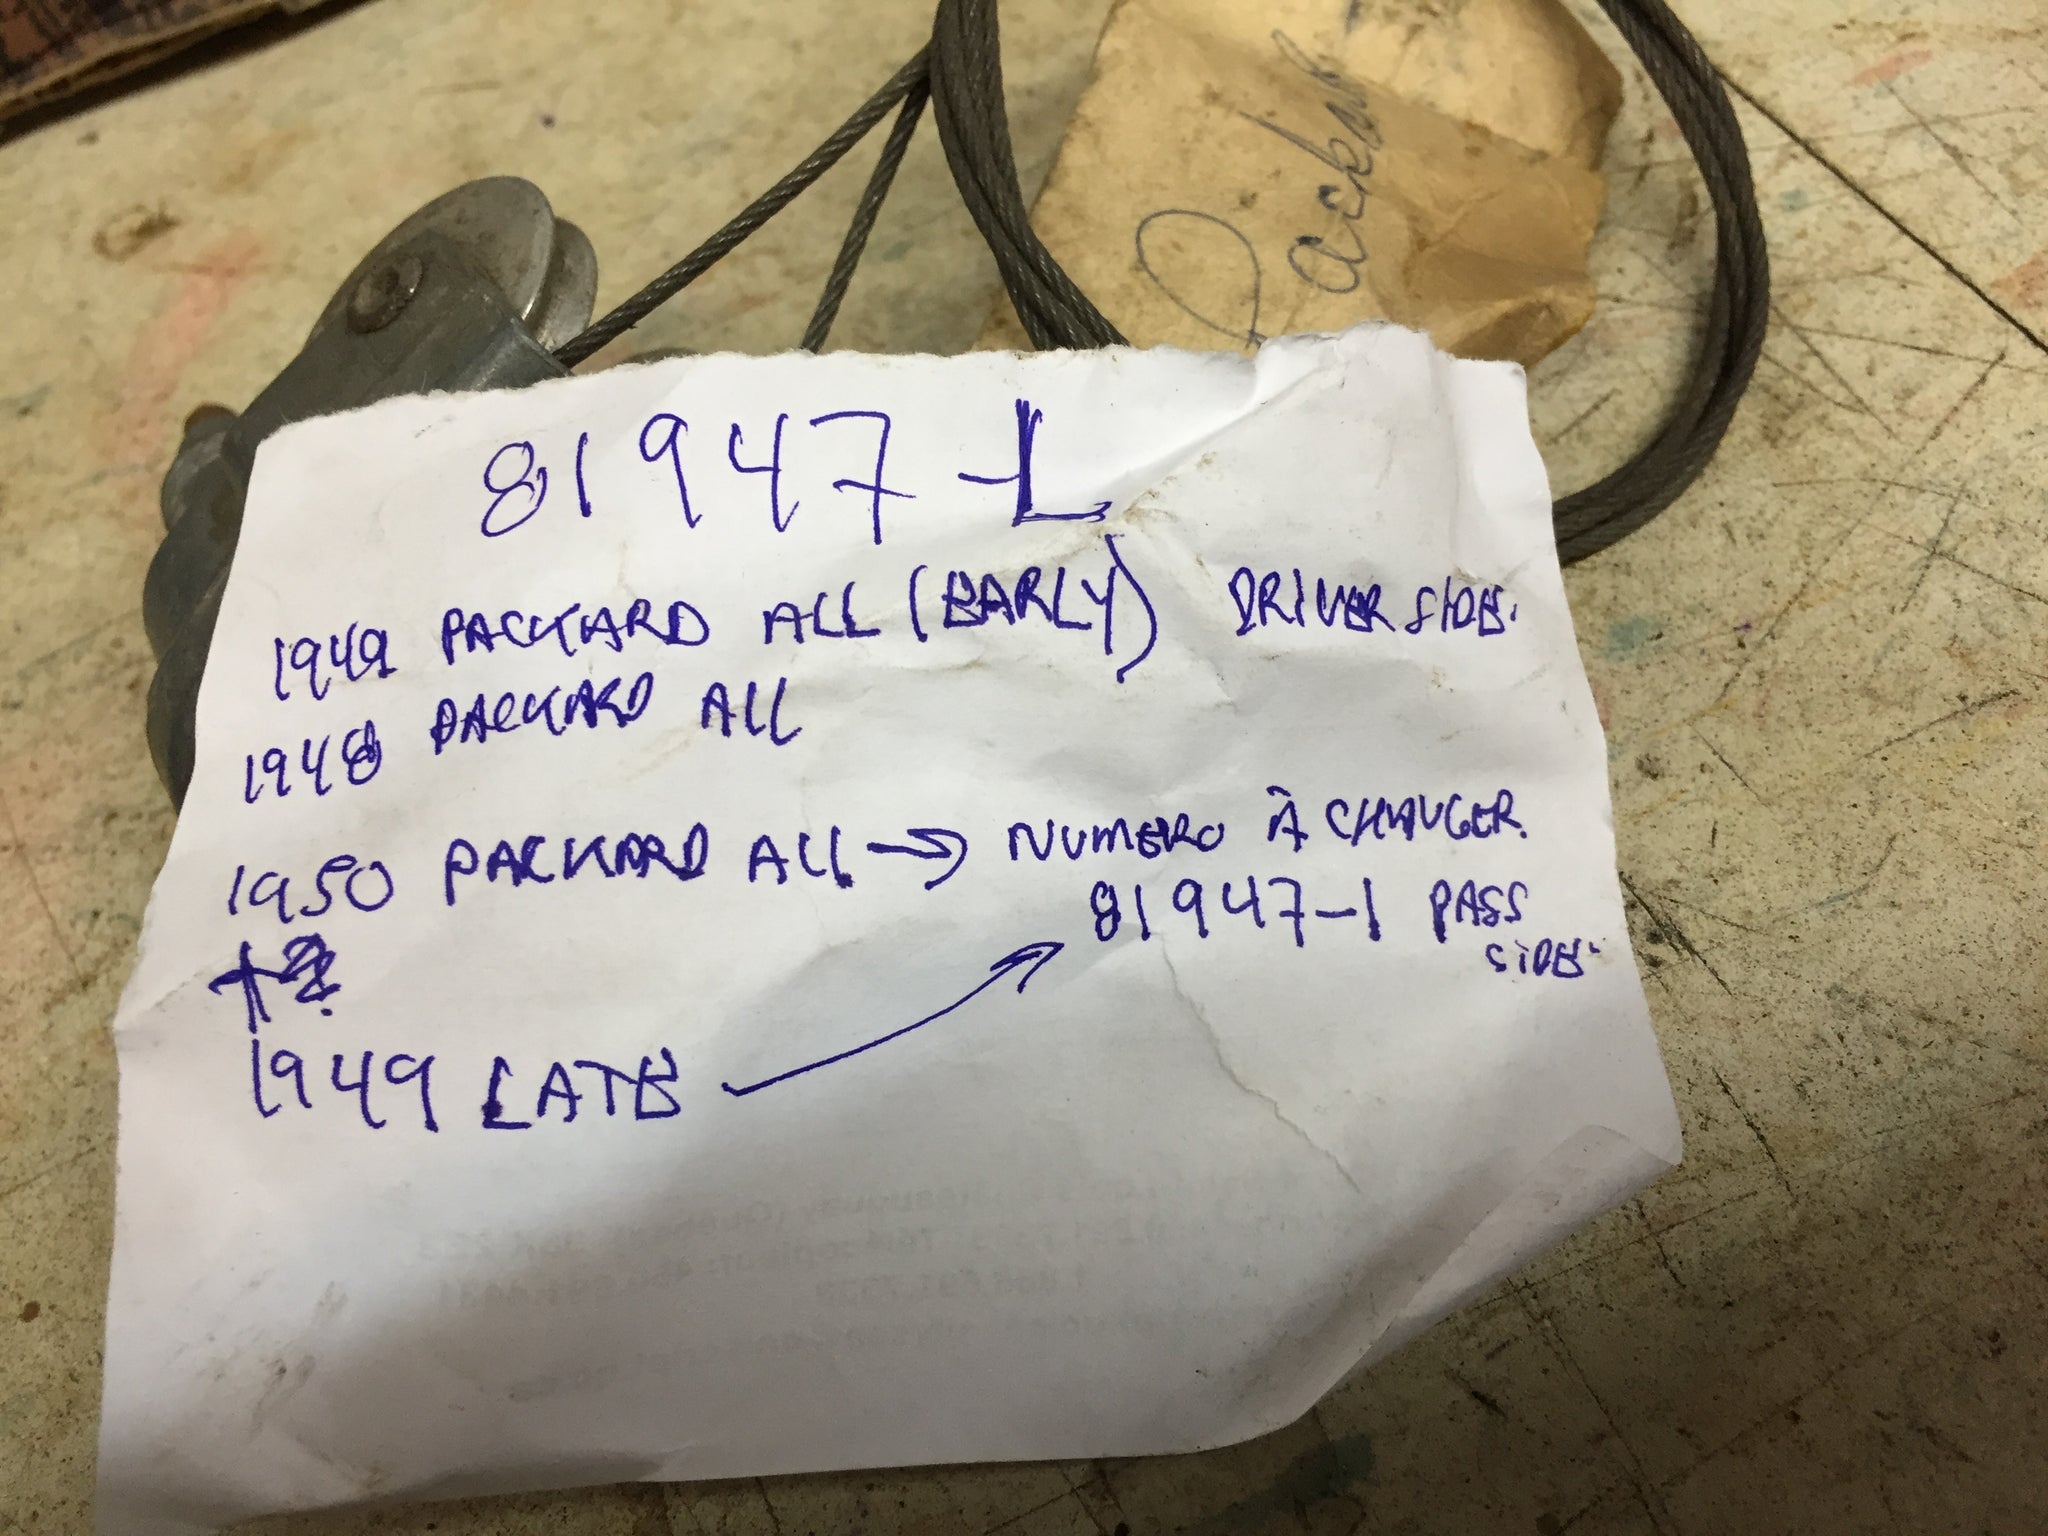 Packard
81947-L
1949 PACKARD ALL (EARLY) DRIVER SIDE.
1948 PACKARD ALL
1950 PACKARD ALL → NUMERO À CHANGER.
81947-1 PASS
SIDE.
1949 LATE